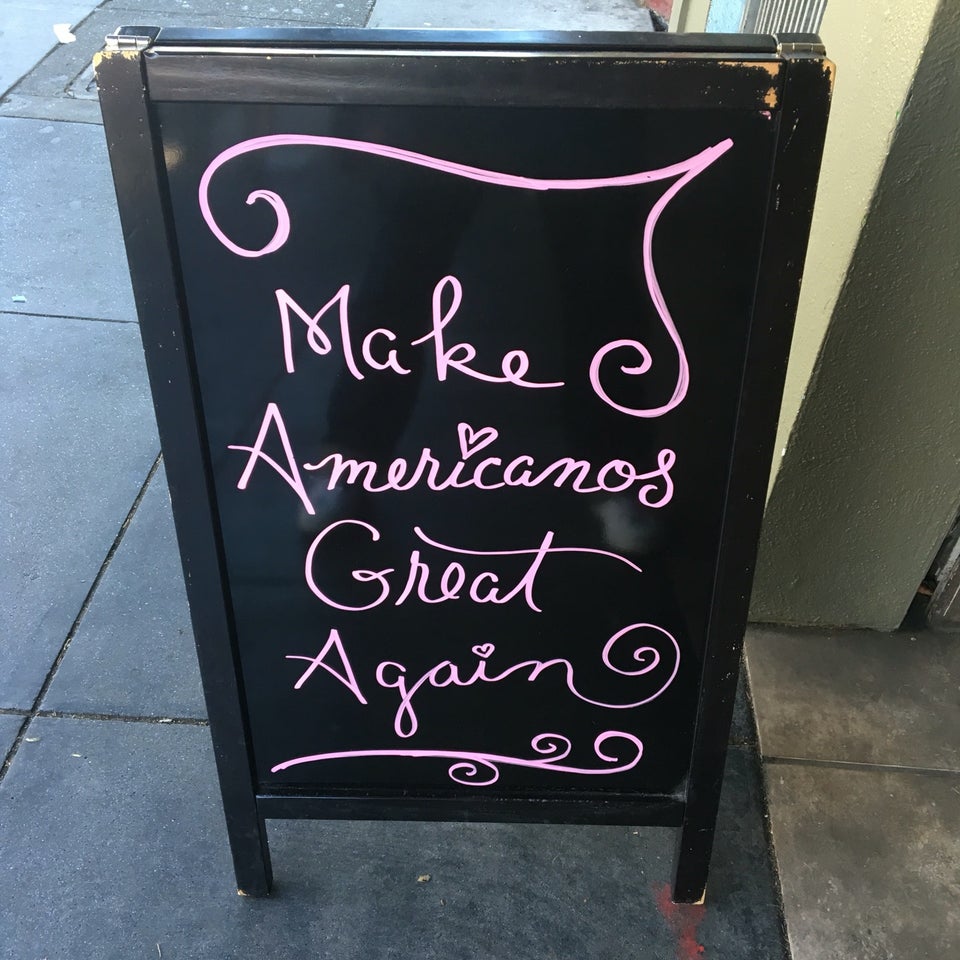 Make
Americanos
Great
Again